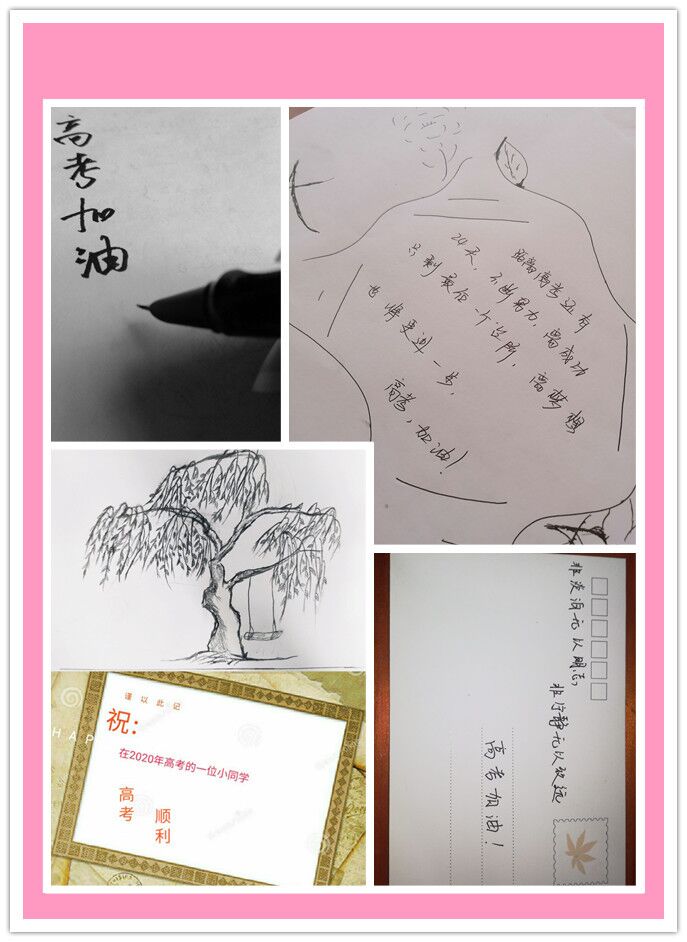 高考加油
距离高考还有
24天，不断努力，离成功
只剩最后一个台阶，离梦想
也将更进一步，
高考，加油！
谨以此记
祝：
HAP
在2020年高考的一位小同学
高考
顺利
非淡泊无以明志，
非宁静无以致远
高考加油！